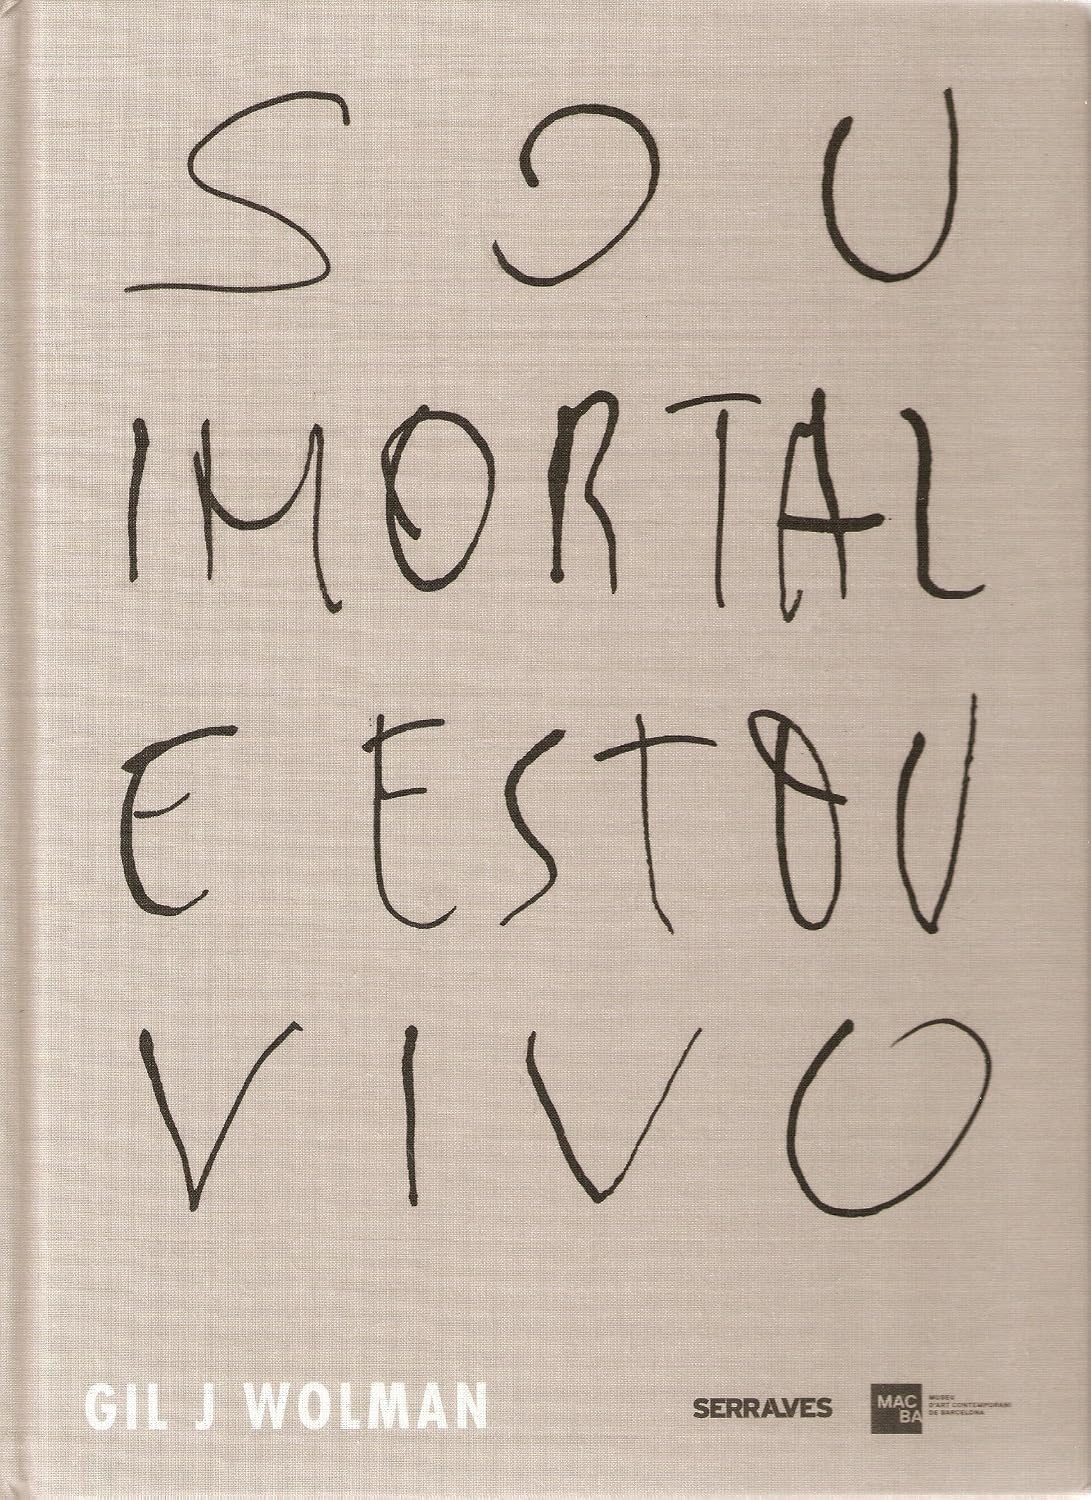 SOU
IMORTAL
E ESTOU
VIVO
GIL J WOLMAN
SERRALVES
MAC
BA
MUSEU
D'ART CONTEMPORANI
DE BARCELONA